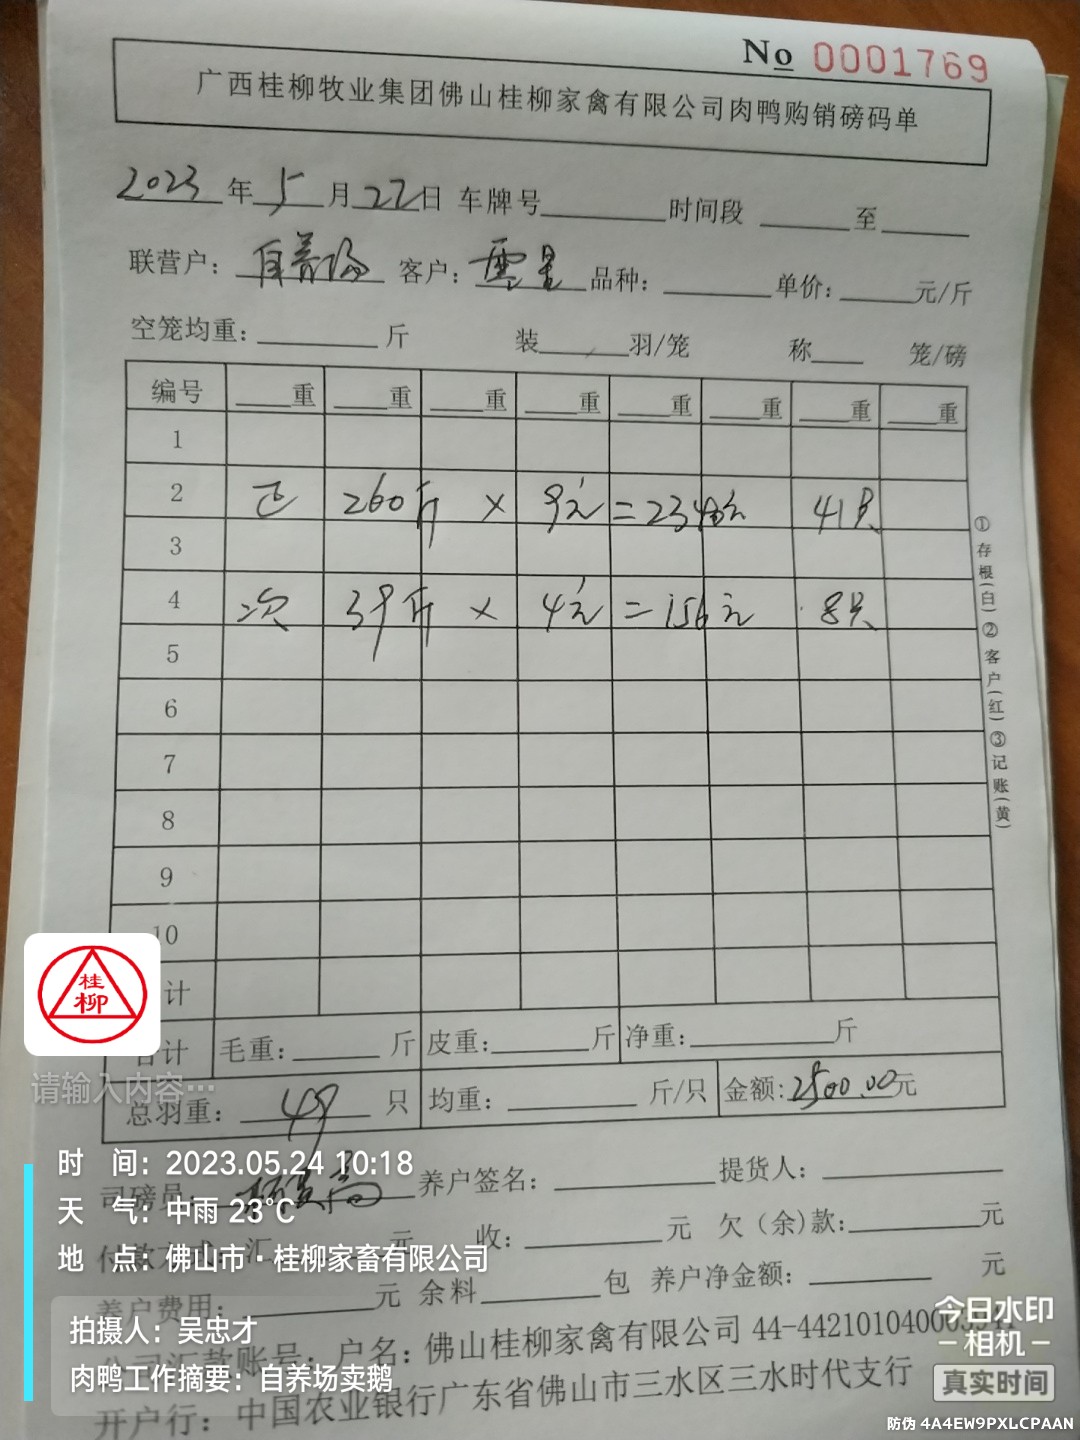 No 0001769
广西桂柳牧业集团佛山桂柳家禽有限公司肉鸭购销磅码单
2023年5月22日 车牌号 时间段 至
联营户：自养场 客户：雪星 品种： 单价： 元/斤
空笼均重： 斤 装 羽/笼 称 笼/磅
编号 重 重 重 重 重 重 重 重
1
2 正 260斤 × 9元 = 2340元 41只
3
4 次 39斤 × 4元 = 156元 8只
5
6
7
8
9
10
计
合计 毛重： 斤 皮重： 斤 净重： 斤
总羽重：49只 均重： 斤/只 金额：2500.00元
①存根(白)②客户(红)③记账(黄)
司磅员： 养户签名： 提货人：
付款方式：汇 元 收： 元 欠（余)款： 元
养户费用： 元 余料 包 养户净金额： 元
公司汇款账号：户名：佛山桂柳家禽有限公司 44-44210104000
开户行：中国农业银行广东省佛山市三水区三水时代支行
桂柳
请输入内容…
时 间：2023.05.24 10:18
天 气：中雨 23℃
地 点：佛山市·桂柳家畜有限公司
拍摄人：吴忠才
肉鸭工作摘要：自养场卖鹅
今日水印
相机
真实时间
防伪 4A4EW9PXLCPAAN